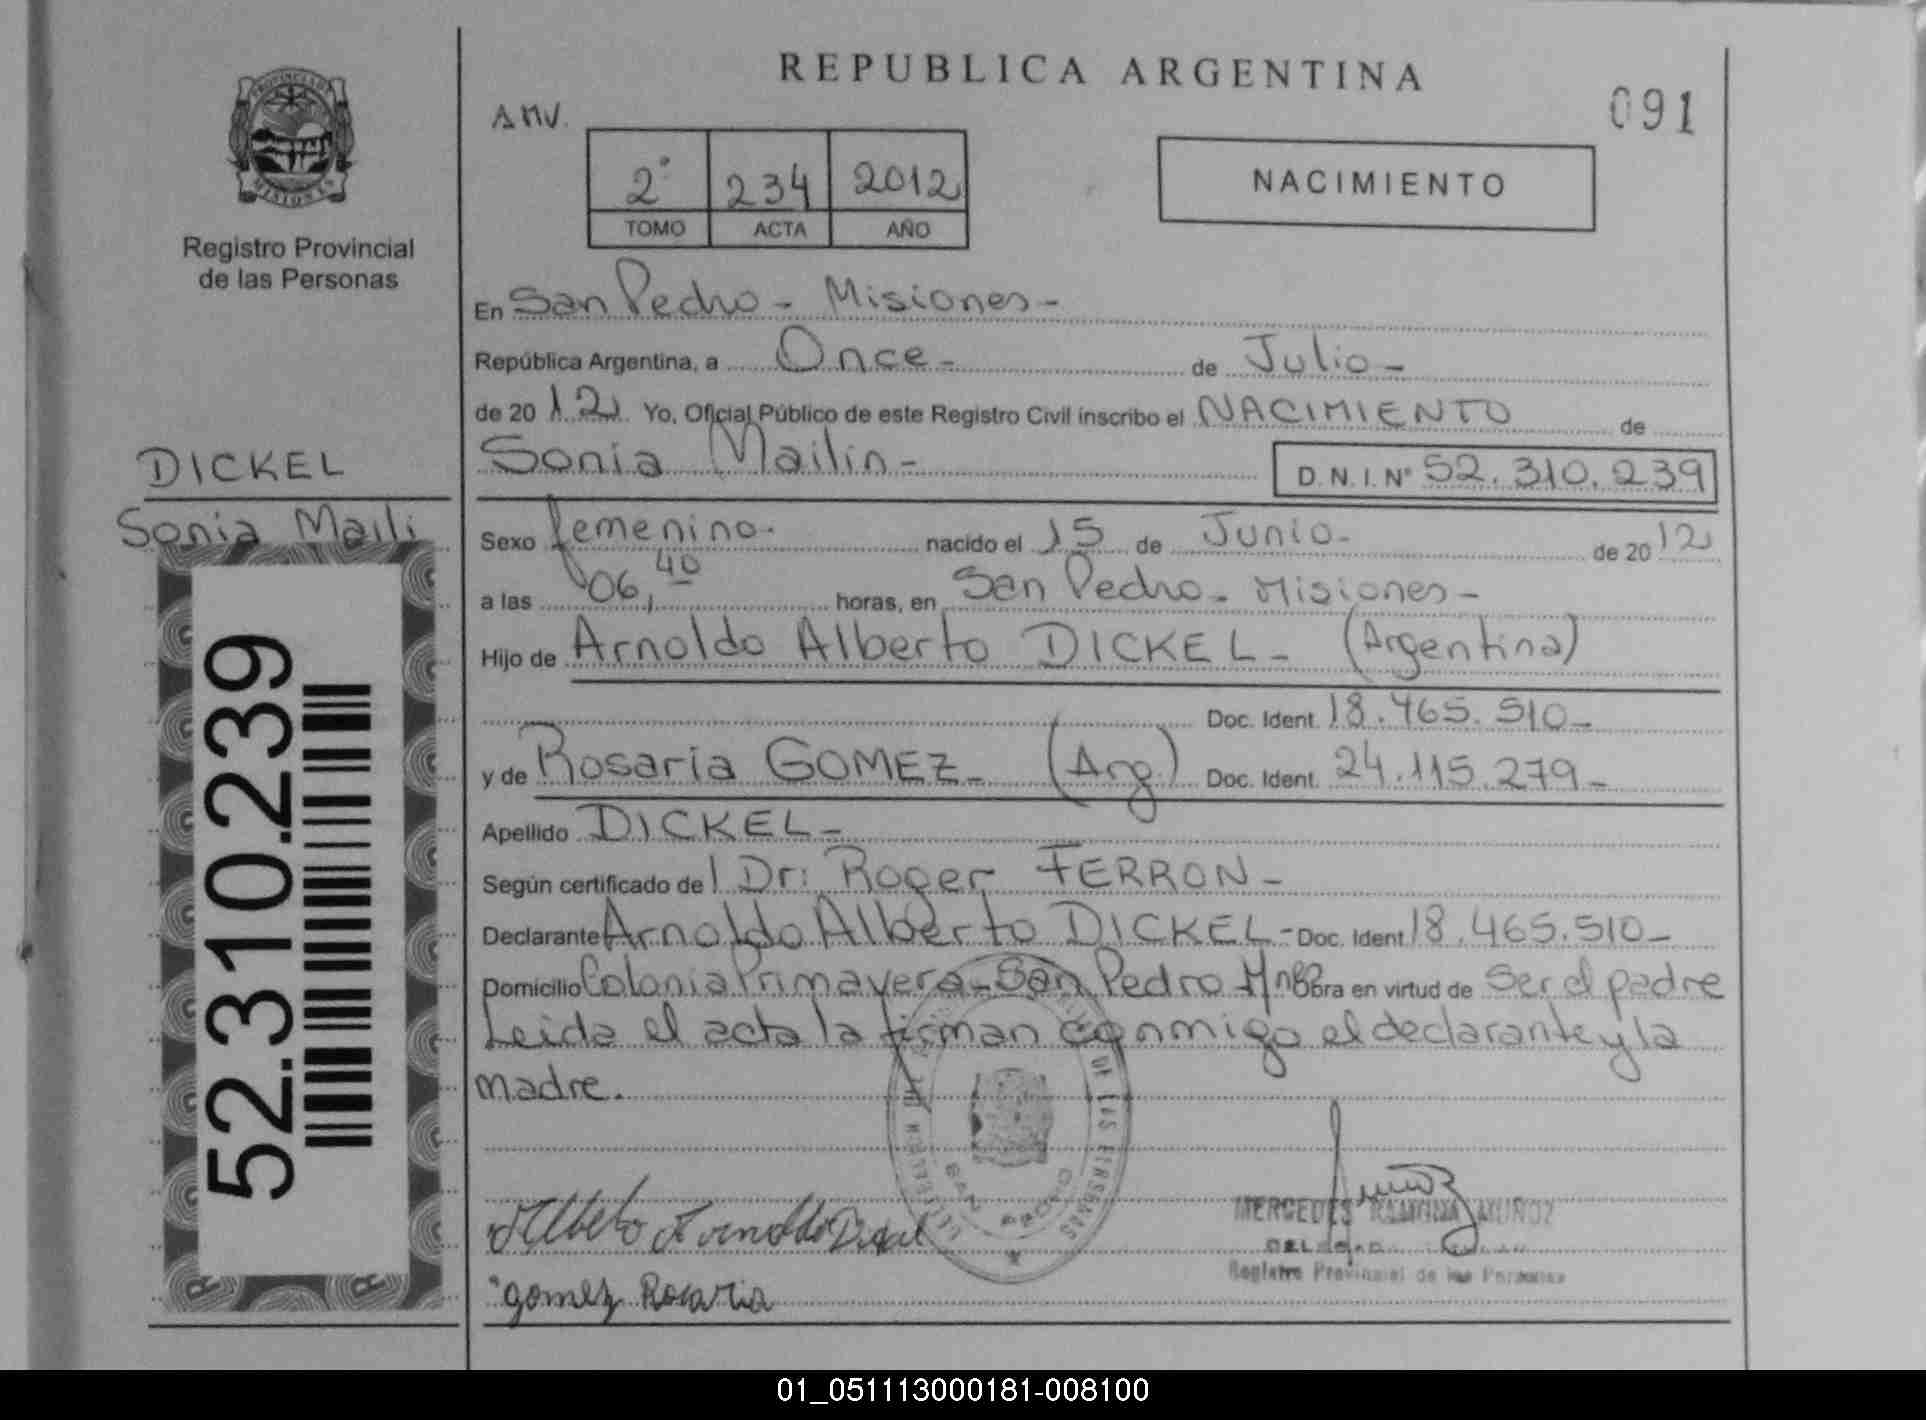 REPUBLICA ARGENTINA
091
A M V.
2° 234 2012
TOMO ACTA AÑO
NACIMIENTO
PROVINCIA DE
MISIONES
Registro Provincial
de las Personas
En San Pedro - Misiones -
República Argentina, a Once - de Julio -
de 20 12 Yo, Oficial Público de este Registro Civil inscribo el NACIMIENTO de
Sonia Mailin - D.N.I. N° 52.310.239
DICKEL
Sonia Maili
Sexo femenino. nacido el 15 de Junio - de 20 12
a las 06,40 horas, en San Pedro - Misiones -
Hijo de Arnoldo Alberto DICKEL - (Argentina)
Doc. Ident. 18.465.510 -
y de Rosaria GOMEZ - (Arg.) Doc. Ident. 24.115.279 -
Apellido DICKEL -
Según certificado de l Dr: Roger FERRON -
Declarante Arnoldo Alberto DICKEL - Doc. Ident 18.465.510 -
Domicilio Colonia Primavera - San Pedro Mnes Obra en virtud de Ser el padre
Leida el acta la firman conmigo el declarante y la
madre.
52.310.239
DE LAS PERSONAS
SAN PEDRO
MERCEDES RAMONA MUÑOZ
Registro Provincial de las Personas
gomez Rosaria
01_051113000181-008100